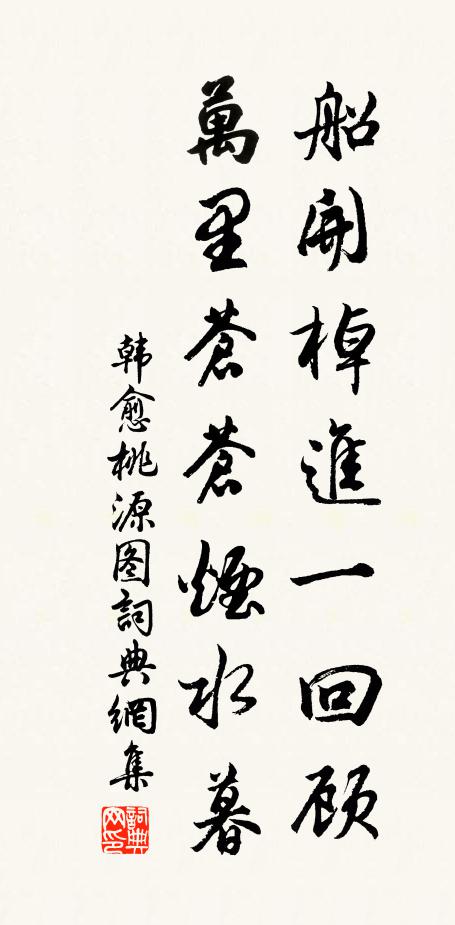 船開棹進一回顾
萬里蒼蒼煙水暮
韩愈桃源图詞典網集
詞典网印